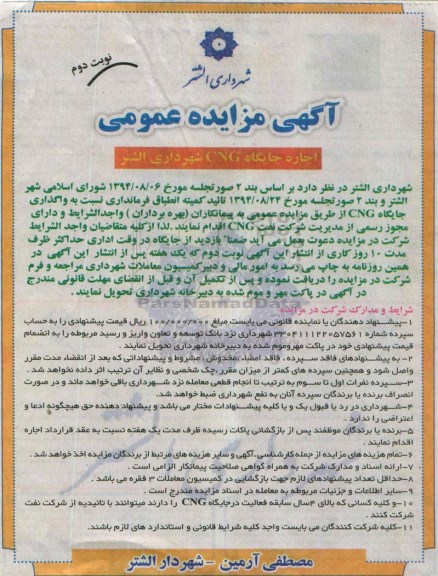 شهرداری الشتر
نوبت دوم
آگهی مزایده عمومی
اجاره جایگاه CNG شهرداری الشتر
شهرداری الشتر در نظر دارد بر اساس بند ۲ صورتجلسه مورخ ۱۳۹۴/۰۸/۰۶ شورای اسلامی شهر
الشتر و بند ۲ صورتجلسه مورخ ۱۳۹۴/۰۸/۲۴ تائید کمیته انطباق فرمانداری نسبت به واگذاری
جایگاه CNG از طریق مزایده عمومی به پیمانکاران (بهره برداران) واجدالشرایط و دارای
مجوز رسمی از مدیریت شرکت نفت CNG اقدام نمایند. لذا ازکلیه متقاضیان واجد الشرایط
شرکت در مزایده دعوت بعمل می آید ضمنا بازدید از جایگاه در وقت اداری حداکثر ظرف
مدت ۱۰ روز کاری از انتشار این آگهی نوبت دوم که یک هفته پس از انتشار این آگهی در
همین روزنامه به چاپ می رسد به امور مالی و دبیرکمیسیون معاملات شهرداری مراجعه و فرم
شرکت در مزایده را دریافت نموده و پس از تکمیل آن و قبل از انقضای مهلت قانونی مندرج
در آگهی در پاکت مهر و موم شده به دبیرخانه شهرداری تحویل نمایند.
شرایط و مدارک شرکت در مزایده
۱-پیشنهاد دهندگان یا نماینده قانونی می بایست مبلغ ۱۰۰/۰۰۰/۰۰۰ ریال قیمت پیشنهادی را به حساب
سپرده شماره ۳۳۰۴۱۱۱۲۲۰۵۷۵۶۱ شهرداری نزد بانک توسعه و تعاون واریز و رسید مربوطه را به انضمام
قیمت پیشنهادی خود در پاکت مهروموم شده به دبیرخانه شهرداری تحویل نمایند.
۲- به پیشنهادهای فاقد سپرده، فاقد امضاء، مخدوش، مشروط و پیشنهاداتی که بعد از انقضاء مدت مقرر
واصل شود و همچنین سپرده های کمتر از میزان مقرر، چک شخصی و نظایر آن ترتیب اثر داده نخواهد شد.
۳-سپرده نفرات اول تا سوم به ترتیب تا انجام قطعی معامله نزد شهرداری باقی خواهد ماند و در صورت
انصراف برنده یا برندگان سپرده آنان به نفع شهرداری ضبط خواهد شد.
۴-شهرداری در رد یا قبول یک و یا کلیه پیشنهادات مختار می باشد و پیشنهاد دهنده حق هیچگونه ادعا و
اعتراضی را ندارد.
۵-برنده یا برندگان موظفند پس از بازگشائی پاکات رسیده ظرف مدت یک هفته نسبت به عقد قرارداد اجاره
اقدام نمایند.
۶-تمام هزینه های مزایده از جمله کارشناسی، آگهی و سایر هزینه های مرتبط از برندگان مزایده اخذ خواهد شد.
۷-ارائه اسناد و مدارک شرکت به همراه گواهی صلاحیت پیمانکار الزامی است.
۸-حداقل تعداد پیشنهادهای لازم جهت بازگشایی در کمیسیون معاملات ۳ فقره می باشد.
۹-سایر اطلاعات و جزئیات مربوطه به معامله در اسناد مزایده مندرج است.
۱۰-و کلیه کسانی که بالای ۳سال سابقه فعالیت درجایگاه CNG را دارند میتوانند با تائیدیه از شرکت نفت
شرکت کنند.
۱۱-کلیه شرکت کنندگان می بایست واجد کلیه شرایط قانونی و استاندارد های لازم باشند.
مصطفی آرمین - شهردار الشتر